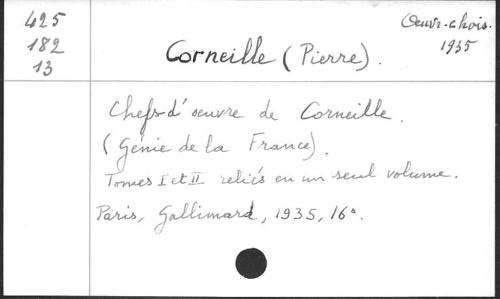 425
182
13
Corneille (Pierre).
Oeuvr. chois.
1935
Chefs-d'oeuvre de Corneille.
(Génie de la France).
Tomes I et II reliés en un seul volume.
Paris, Gallimard, 1935, 16°.